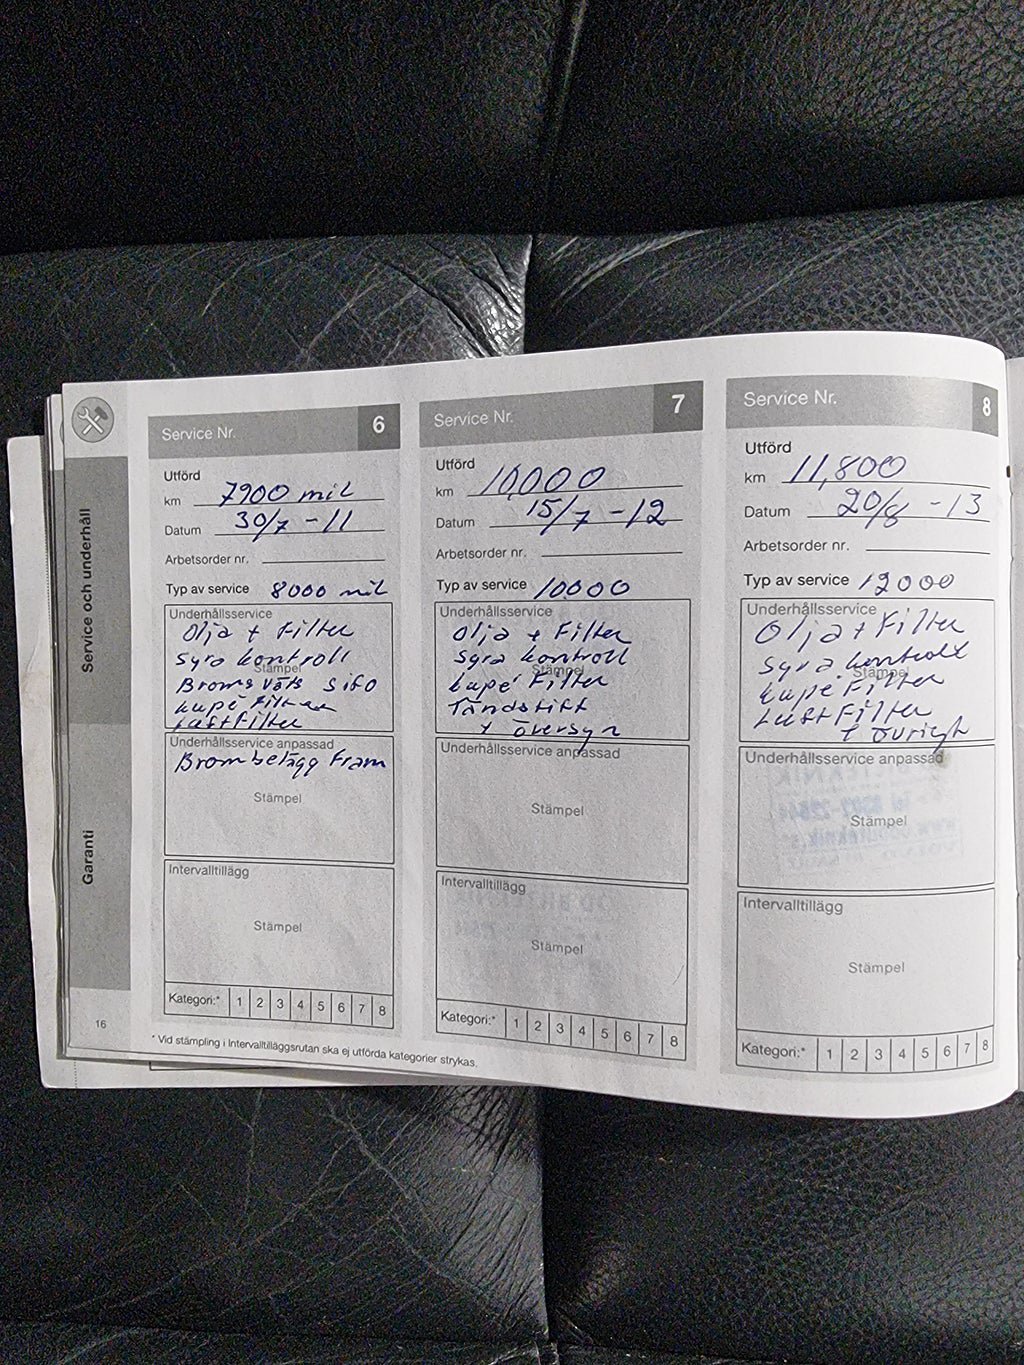 Service och underhåll
Garanti
16
Service Nr. 6
Utförd
km 7900 mil
Datum 30/7 -11
Arbetsorder nr.
Typ av service 8000 mil
Underhållsservice
Olja + Filter
Syra kontroll
Stämpel
Broms väts
kupé Filter
Luftfilter
Underhållsservice anpassad
Brombelägg Fram
Stämpel
Intervalltillägg
Stämpel
Kategori:* 1 2 3 4 5 6 7 8
Service Nr. 7
Utförd
km 10,000
Datum 15/7 -12
Arbetsorder nr.
Typ av service 10000
Underhållsservice
Olja + Filter
Syra kontroll
Stämpel
kupé Filter
Tändstift
+ översyn
Underhållsservice anpassad
Stämpel
Intervalltillägg
Stämpel
Kategori:* 1 2 3 4 5 6 7 8
Service Nr. 8
Utförd
km 11,800
Datum 20/8 -13
Arbetsorder nr.
Typ av service 12000
Underhållsservice
Olja + Filter
Syra kontroll
Stämpel
kupé Filter
Luft Filter
+ övrigt
Underhållsservice anpassad
Stämpel
Intervalltillägg
Stämpel
Kategori:* 1 2 3 4 5 6 7 8
* Vid stämpling i Intervalltilläggsrutan ska ej utförda kategorier strykas.